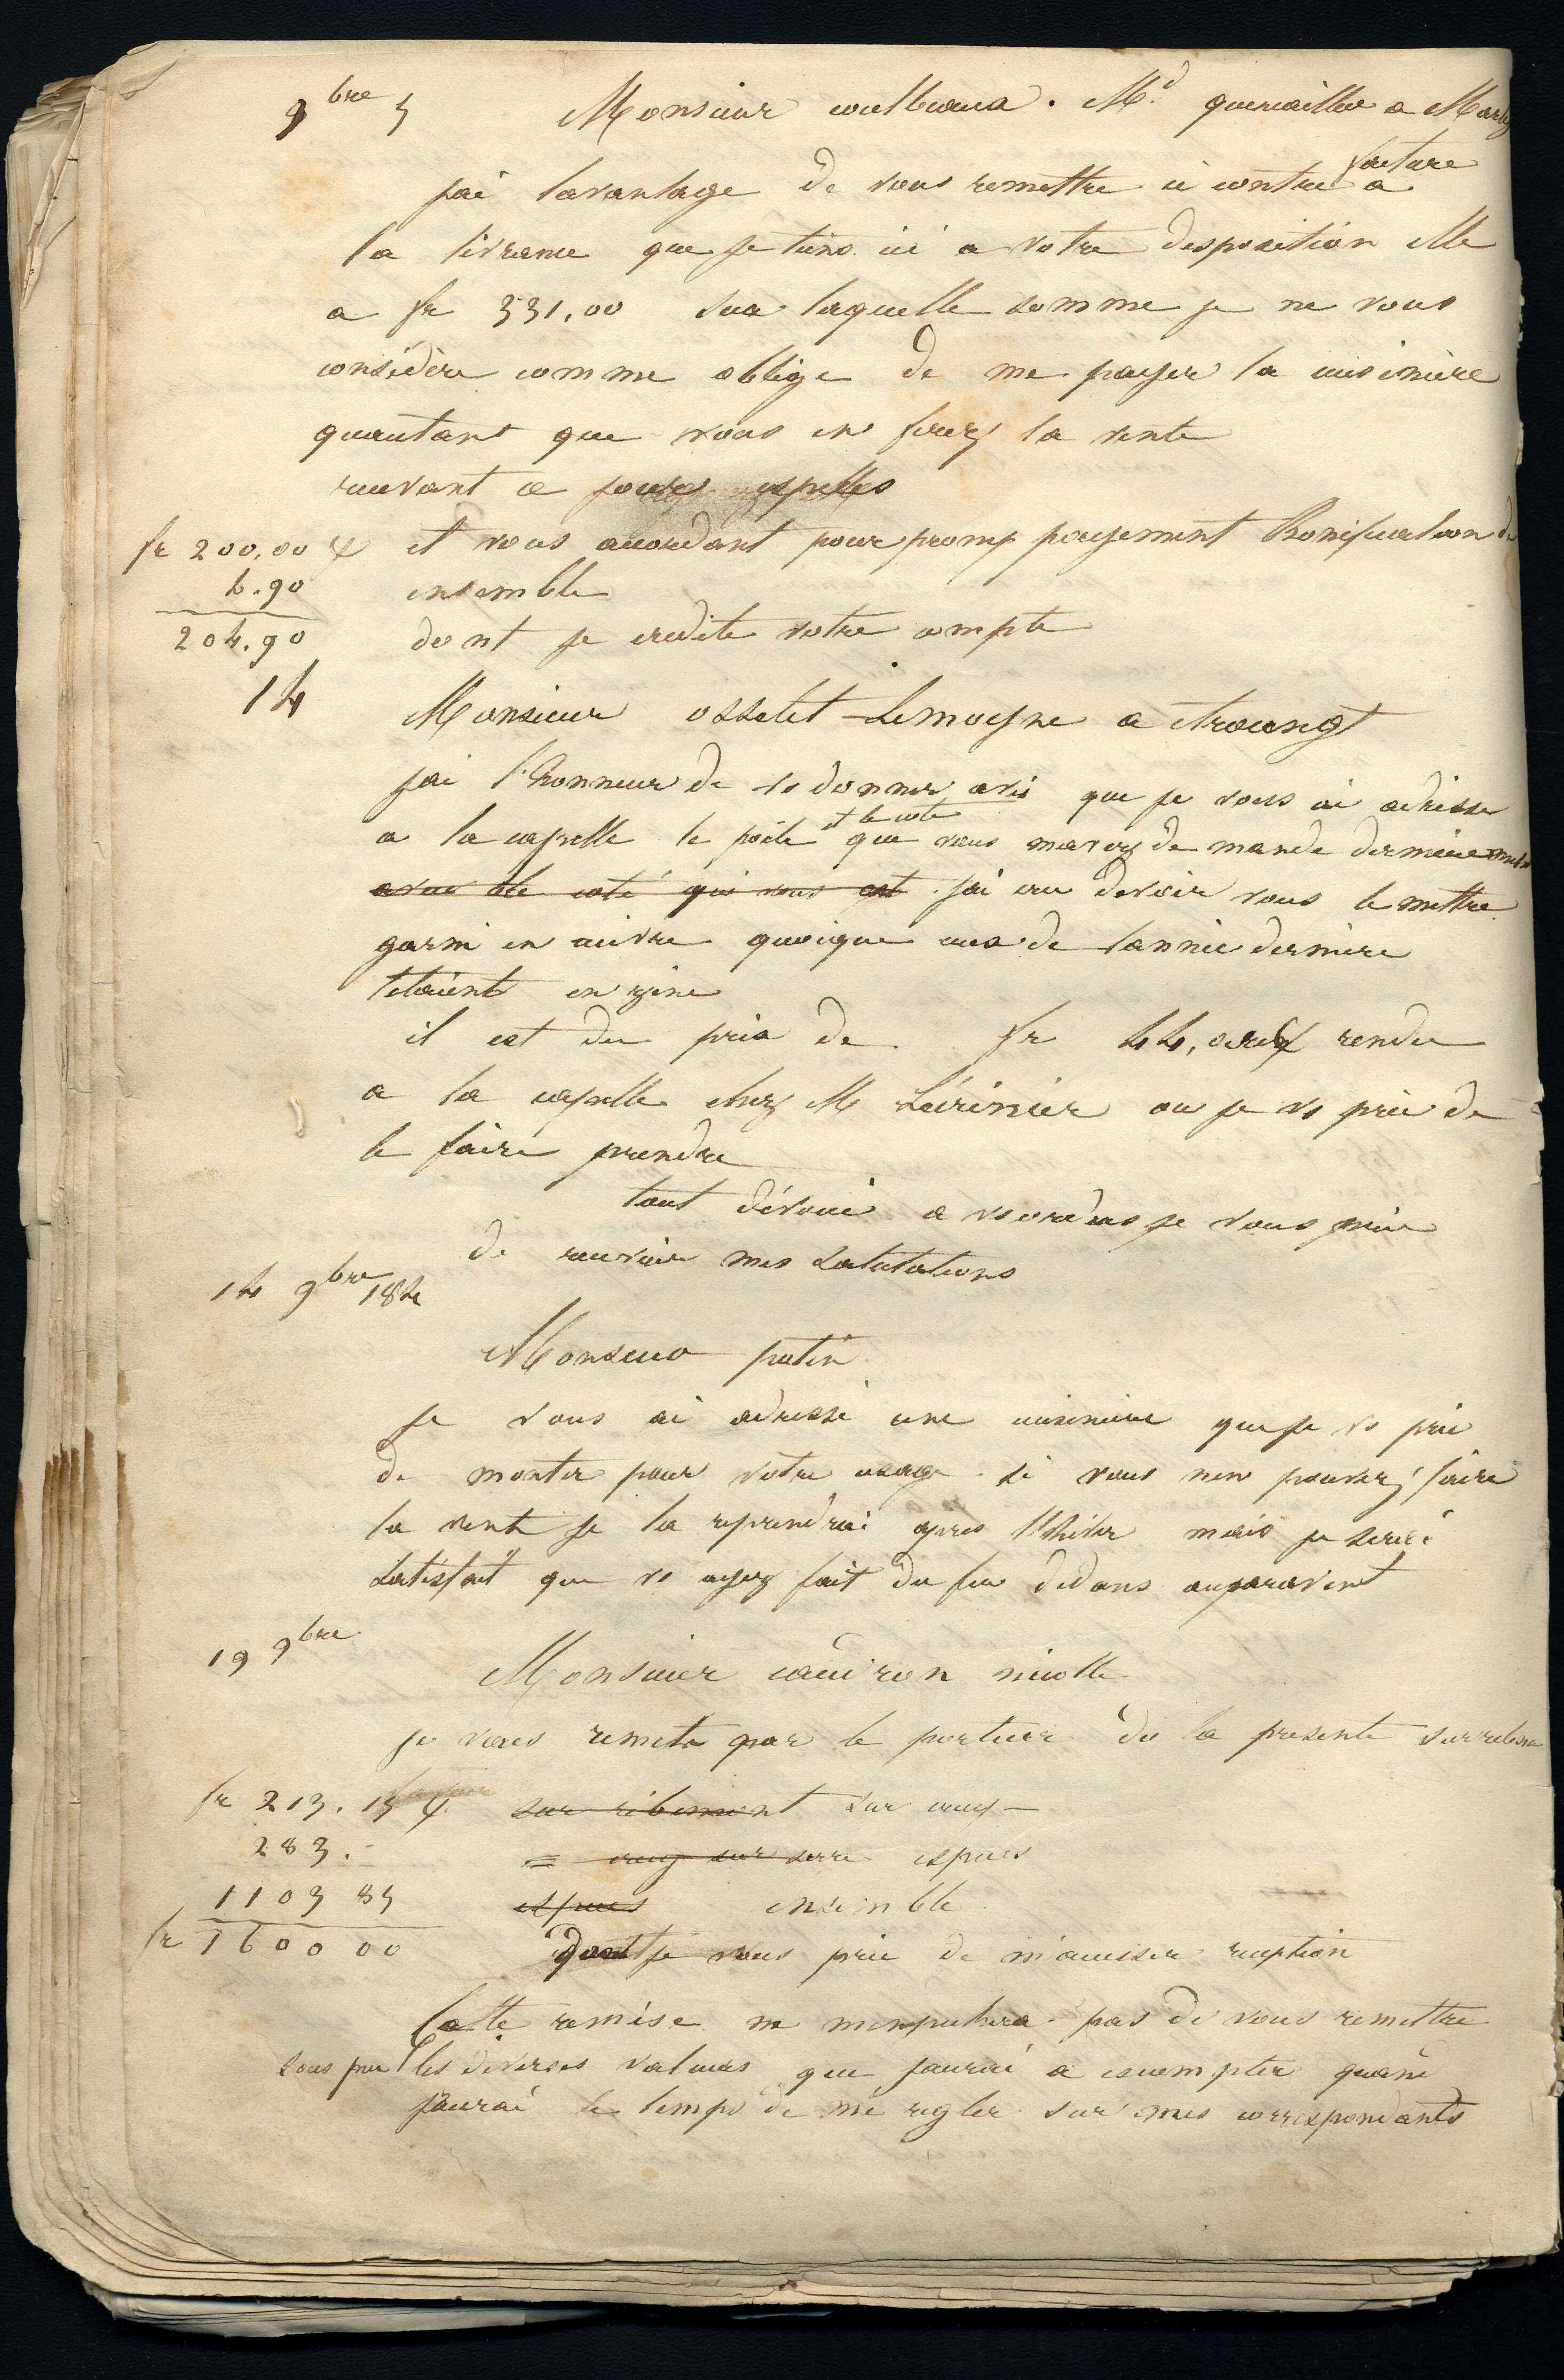 9bre 5 Monsieur M.d quincaillier a Marly
jai lavantage de vous remettre ci contre facture a
la livrance que je tiens ici a votre disposition elle
a fr 531,00 sur laquelle somme je ne vous
considère comme oblige de me payer la cuisinière
quautant que vous en ferez la vente
recevant ce jour espèces
fr 200,00 et vous accordant pour promp payement Bonification de
4.90 ensemble
204.90 dont je credite votre compte
14 Monsieur osselet-Lemoyne a etroeungt
jai l'honneur de vs donner avis que je vous ai adresse
a la capelle le poële et le coté que vous mavez demande dernierement
avec le coté qui vous est jai cru devoir vous le mettre
garni en cuivre quoique ceux de lannée dernière
létaient en zinc
il est du prix de fr 44, rendu
a la capelle chez M ou je vs prie de
le faire prendre
tout dévoué a vs ordres je vous prie
de recevoir mes salutations
14 9bre 184
Monsieur patin
je vous ai adressé une cuisinière que je vs prie
de monter pour votre usage si vous nen pouvez faire
la vente je la reprendrai apres l'hiver mais je serai
satisfait que vs ayez fait du feu dedans auparavent
19 9bre
Monsieur caudron nicolle
je vous remets par le porteur de la presente sur ribemont
fr 213.15 sur ribemont sur crecy
283.- = crecy sur serre espèces
1103 85 espèces ensemble
fr 1600 00 dont je vous prie de m'accuser reception
Cette remise ne mempechera pas de vous remettre
sous peu les diverses valeurs que jaurai a escompter quand
jaurai le temps de me regler sur mes correspondants